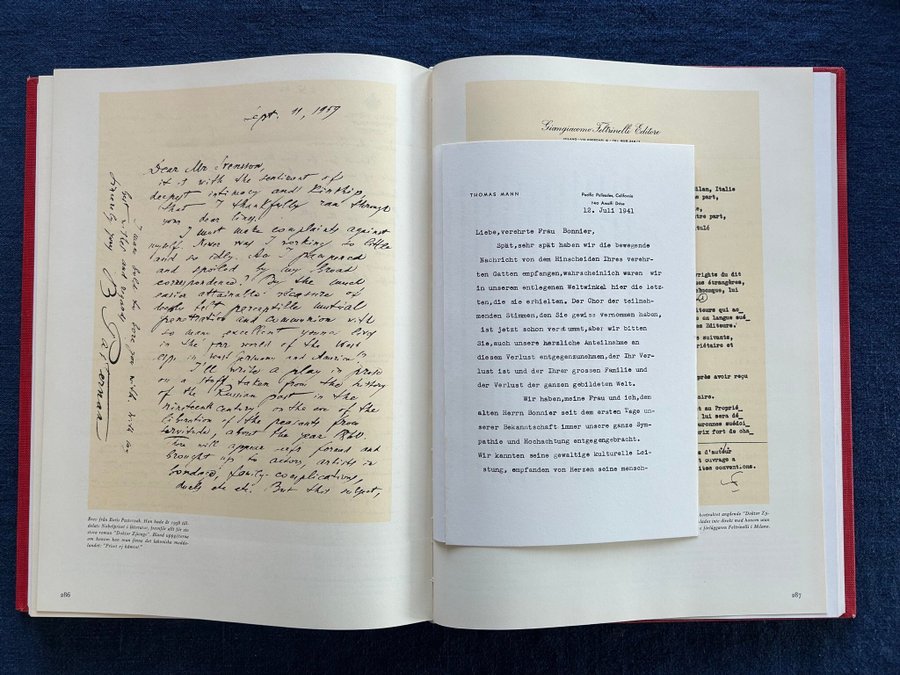 Sept. 11, 1959
Dear Mr Svensson,
it is with the sentiment of
deepest intimacy and kinship,
that I thankfully ran through
your dear lines.
I must make complaints against
myself. Never was I working so little
and so idly. Am I pampered
and spoiled by my broad
correspondence? By the much
easier attainable pleasure of
deeply felt perceptible mutual
penetration and communion with
so many excellent young lives
in the far world of the West
esp. in west Germany and America?
I'll write a play in prose
on a stuff taken from the history
of the Russian past in the
nineteenth century, on the eve of the
liberation of the peasants from
servitude, about the year 1860.
There will appear serfs formed and
brought up to actors, artists in
bondage, family complications,
duels etc etc. But this subject,
you with all my
best wishes and regards
yours B. Pasternak
Brev från Boris Pasternak. Han hade år 1958 till-
delats Nobelpriset i litteratur, framför allt för sin
stora roman "Doktor Zjivago". Bland uppgifterna
om honom finns det lakoniska medde-
landet: "Priset ej hämtat".
286
Giangiacomo Feltrinelli Editore
THOMAS MANN
Pacific Palisades, California
740 Amalfi Drive
12. Juli 1941
Liebe, verehrte Frau Bonnier,
Spät, sehr spät haben wir die bewegende
Nachricht von dem Hinscheiden Ihres verehr-
ten Gatten empfangen, wahrscheinlich waren wir
in unserem entlegenen Weltwinkel hier die letz-
ten, die sie erhielten. Der Chor der teilneh-
menden Stimmen, den Sie gewiss vernommen haben,
ist jetzt schon verstummt, aber wir bitten
Sie, auch unsere herzliche Anteilnahme an
diesem Verlust entgegenzunehmen, der Ihr Ver-
lust ist und der Ihrer grossen Familie und
der Verlust der ganzen gebildeten Welt.
Wir haben, meine Frau und ich, den
alten Herrn Bonnier seit dem ersten Tage un-
serer Bekanntschaft immer unsere ganze Sym-
pathie und Hochachtung entgegengebracht.
Wir kannten seine gewaltige kulturelle Lei-
stung, empfanden von Herzen seine mensch-
Milan, Italie
e part,
utre part,
titulé
yrights du dit
es étrangères,
lui
iteurs qui ac_
en langue sué_
es Editeurs.
s suivants,
priétaire et
près avoir reçu
aire.
t au Proprié_
lui sera dé_
uronnes suédoi_
prix fort de cha_
s d'auteur
t ouvrage a
ites conventions.
kontraktet angående "Doktor Zji-
direkt med honom utan
förläggaren Feltrinelli i Milano.
287